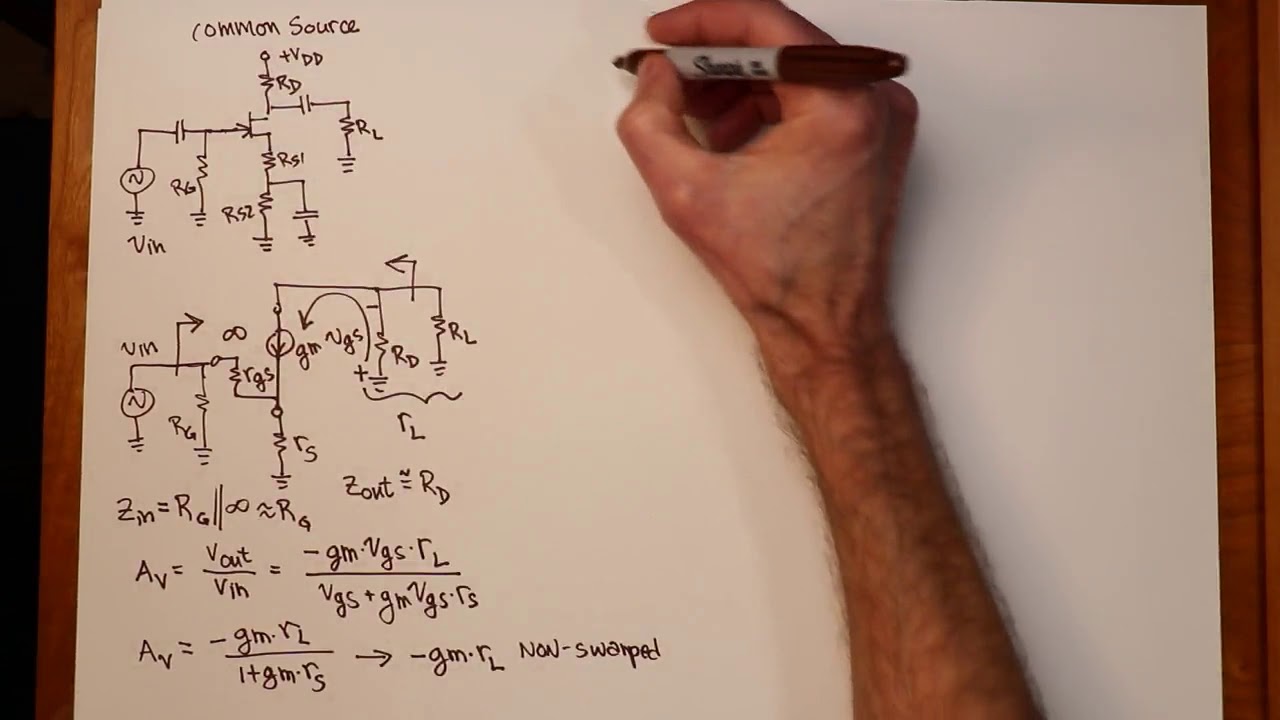 Common Source
+VDD
RD
RL
RG
RS1
RS2
Vin
∞
Vin
gm Vgs
rgs
RD
RL
RG
+
−
rL
rS
Zout ≅ RD
Zin = RG || ∞ ≈ RG
Av = Vout / Vin = −gm·Vgs·rL / Vgs + gm Vgs·rS
Av = −gm·rL / 1+gm·rS → −gm·rL Non-swamped
Sharpie